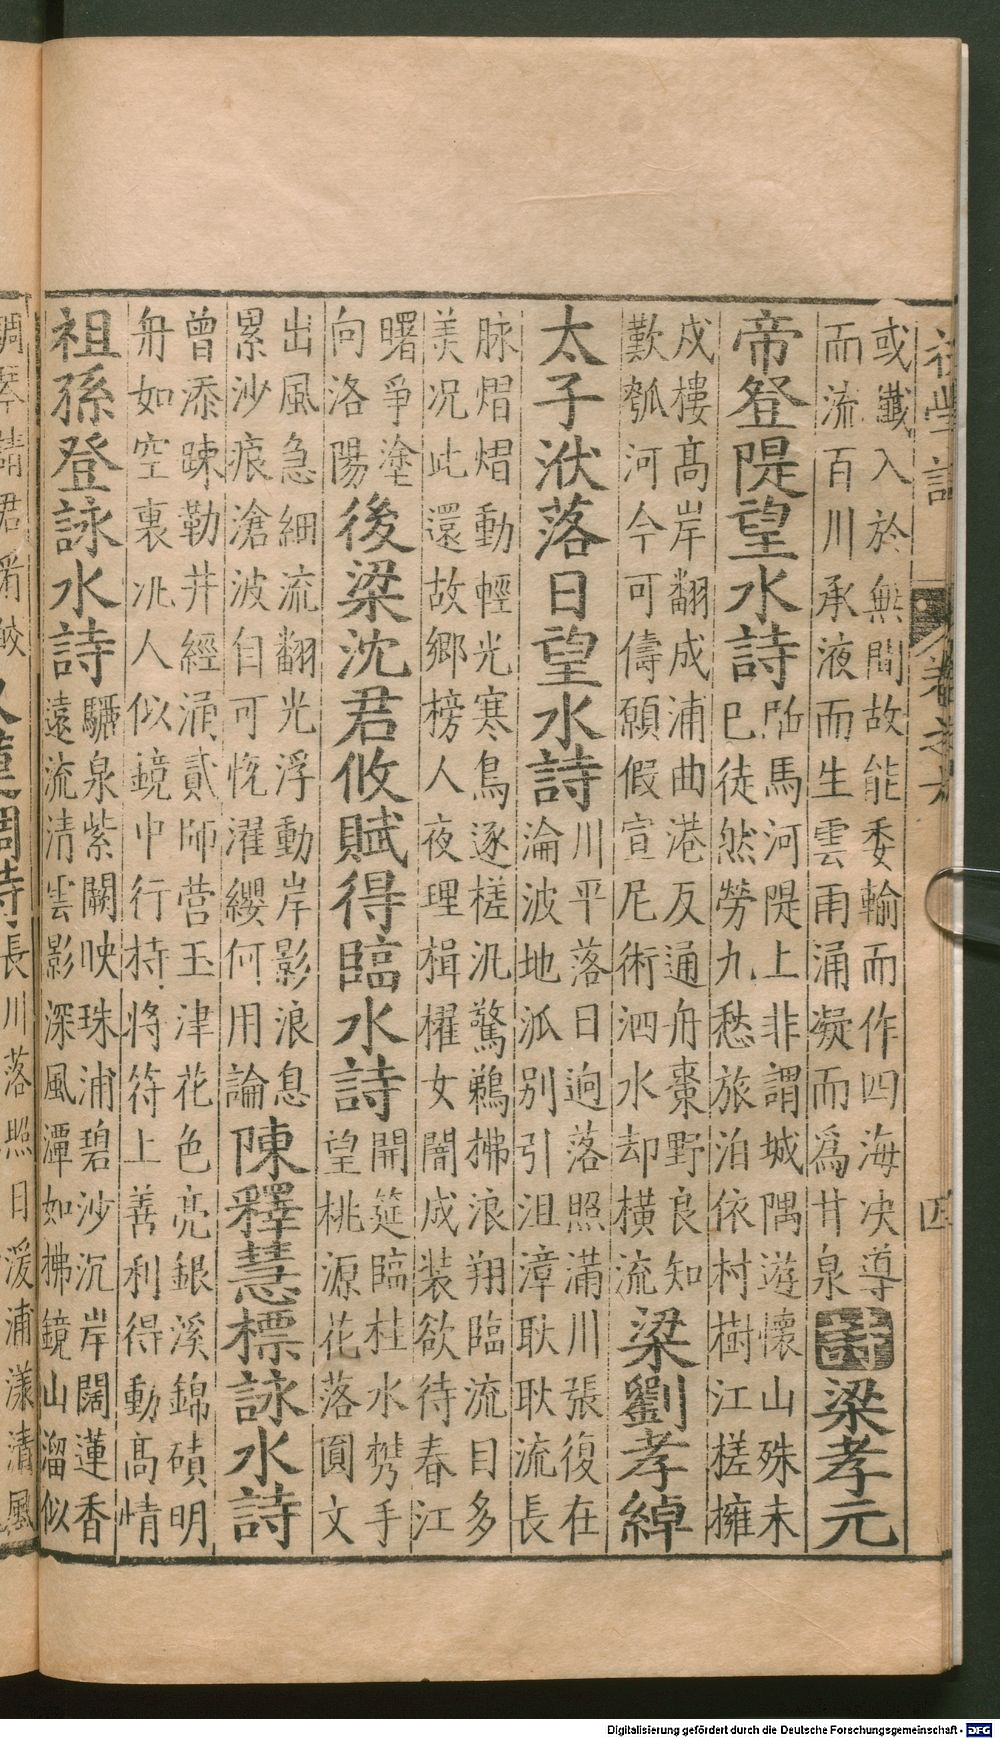 或瀸入於無間故能委輸而作四海决導
而流百川承液而生雲雨涌凝而爲甘泉
詩
梁孝元
帝登隄望水詩
旆馬河隄上非謂城隅遊懷山殊未
已徒然勞九愁旅泊依村樹江槎擁
戍樓髙岸翻成浦曲港反通舟棗野良知
歎瓠河今可儔願假宣尼術泗水却横流
梁劉孝綽
太子洑落日望水詩
川平落日逈落照滿川張復在
淪波地派别引沮漳耿耿流長
脉熠熠動輕光寒鳥逐槎汎驚鵜拂浪翔臨流目多
美况此還故鄉榜人夜理楫櫂女闇成装欲待春江
曙爭塗
向洛陽
後梁沈君攸賦得臨水詩
開筵臨桂水㩦手
望桃源花落圓文
出風急細流翻光浮動岸影浪息
累沙痕滄波自可悅濯纓何用論
陳釋慧標詠水詩
曾添踈勒井經涌貳師营玉津花色亮銀溪錦磧明
舟如空裏汎人似鏡中行持將符上善利得動髙情
祖孫登詠水詩
驪泉紫闕映珠浦碧沙沉岸闊蓮香
遠流清雲影深風潭如拂鏡山溜似
調琴請君
長川落照日浦漾清風
Digitalisierung gefördert durch die Deutsche Forschungsgemeinschaft - DFG